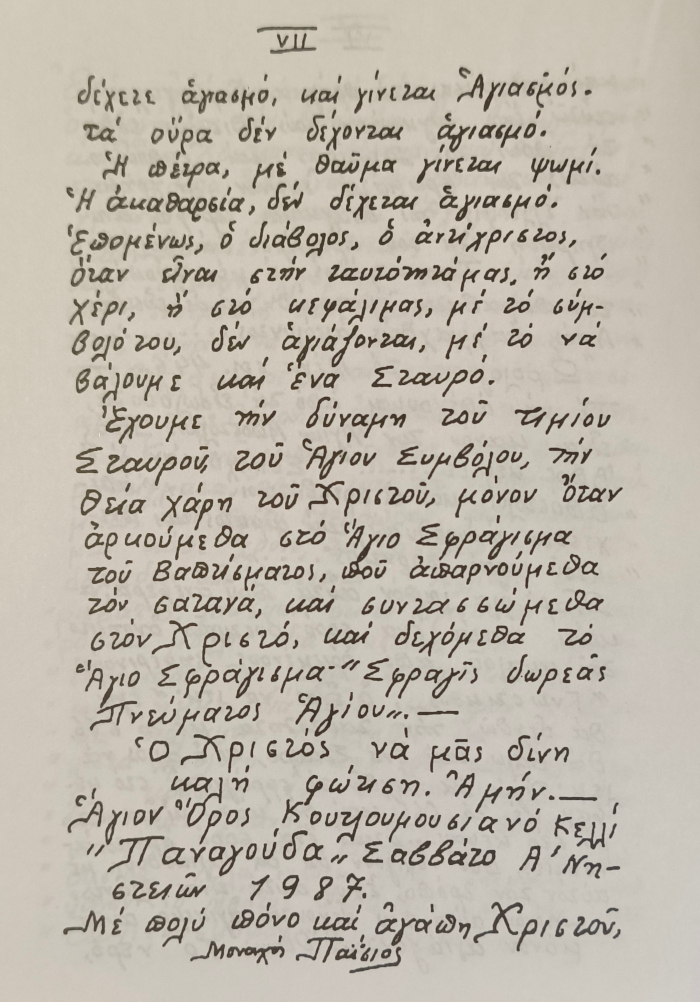 VII
δέχετε ἁγιασμό, καί γίνεται Ἁγιασμός.
τά οὖρα δέν δέχονται ἁγιασμό.
Ἡ πέτρα, μέ θαῦμα γίνεται ψωμί.
Ἡ ἀκαθαρσία, δέν δέχεται ἁγιασμό.
Ἑπομένως, ὁ διάβολος, ὁ ἀντίχριστος,
ὅταν εἶναι στήν ταυτότητάμας, ἤ στό
χέρι, ἤ στό κεφάλιμας, μέ τό σύμ-
βολότου, δέν ἁγιάζονται, μέ τό νά
βάλουμε καί ἕνα Σταυρό.
Ἔχουμε τήν δύναμη τοῦ τιμίου
Σταυροῦ, τοῦ Ἁγίου Συμβόλου, τήν
θεία χάρη τοῦ Χριστοῦ, μόνον ὅταν
ἀρκούμεθα στό Ἅγιο Σφράγισμα
τοῦ Βαπτίσματος, πού ἀπαρνούμεθα
τόν σατανά, καί συντασσώμεθα
στόν Χριστό, καί δεχόμεθα τό
Ἅγιο Σφράγισμα-"Σφραγῖς δωρεᾶς
Πνεύματος Ἁγίου".—
Ὁ Χριστός νά μᾶς δίνη
καλή φώτιση. Ἀμήν.—
Ἅγιον Ὄρος Κουτλουμουσιανό Κελλί
"Παναγούδα" Σαββάτο Α' Νη-
στειῶν 1987.
Μέ πολύ πόνο καί ἀγάπη Χριστοῦ,
Μοναχός Παΐσιος